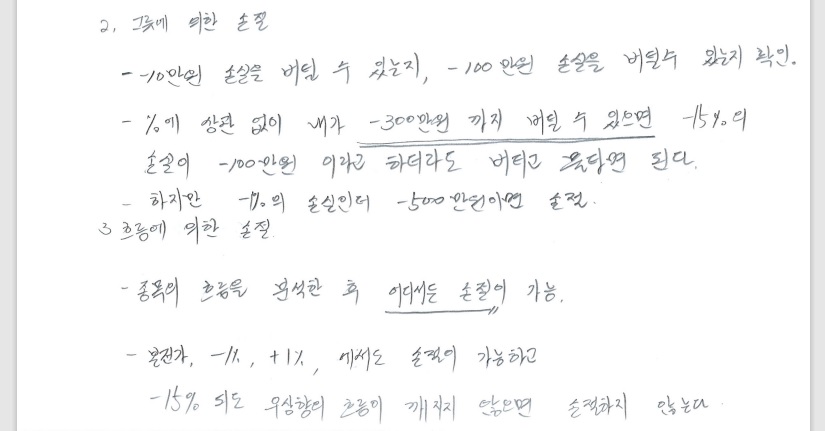 2. 그릇에 의한 손절
- -10만원 손실을 버틸 수 있는지, -100만원 손실을 버틸수 있는지 확인.
- %에 상관 없이 내가 -300만원 까지 버틸 수 있으면 -15%의
손실이 -100만원 이라고 하더라도 버티고 홀딩하면 된다.
- 하지만 -1%의 손실인데 -500만원이면 손절.
3 흐름에 의한 손절
- 종목의 흐름을 분석한 후 어디서든 손절이 가능.
- 본전가, -1%, +1%, 에서도 손절이 가능하고
-15% 되도 우상향의 흐름이 깨지지 않으면 손절하지 않는다.